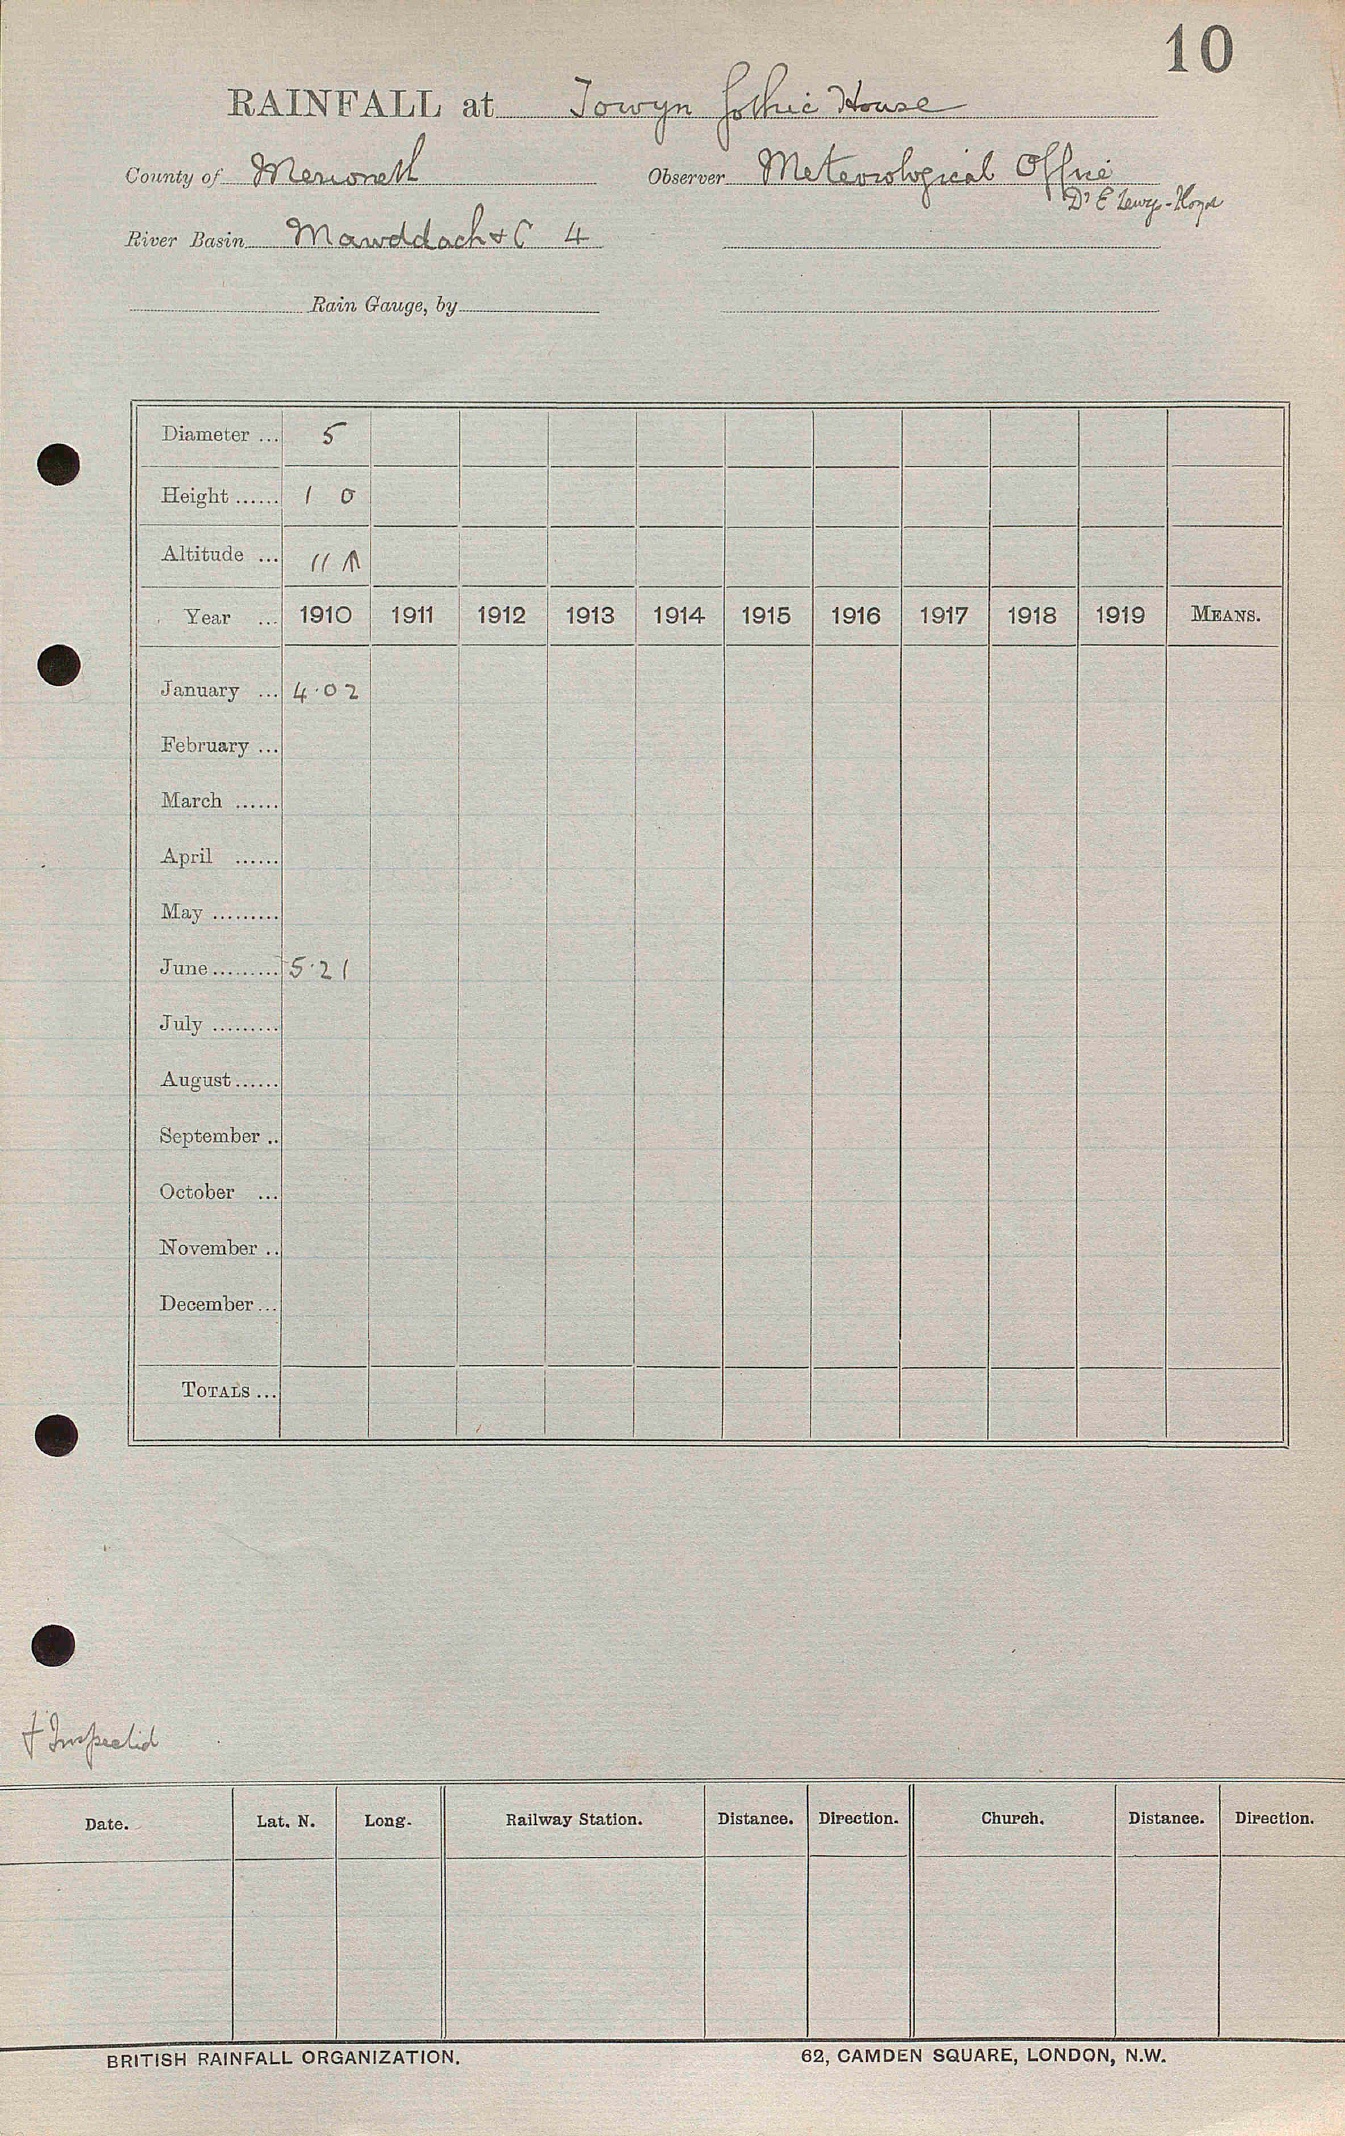 10
RAINFALL at Towyn Gothic House
County of Merioneth Observer Meteorological Office
Dr E Lewys-Lloyd
River Basin Mawddach &c 4
Rain Gauge, by
Diameter ... 5
Height ...... 1 0
Altitude ... 11
Year ... 1910 1911 1912 1913 1914 1915 1916 1917 1918 1919 MEANS.
January ... 4.02
February ...
March ......
April ......
May .........
June ......... 5.21
July .........
August ......
September ..
October ...
November ..
December ...
TOTALS ...
† Inspected
Date. Lat. N. Long. Railway Station. Distance. Direction. Church. Distance. Direction.
BRITISH RAINFALL ORGANIZATION. 62, CAMDEN SQUARE, LONDON, N.W.